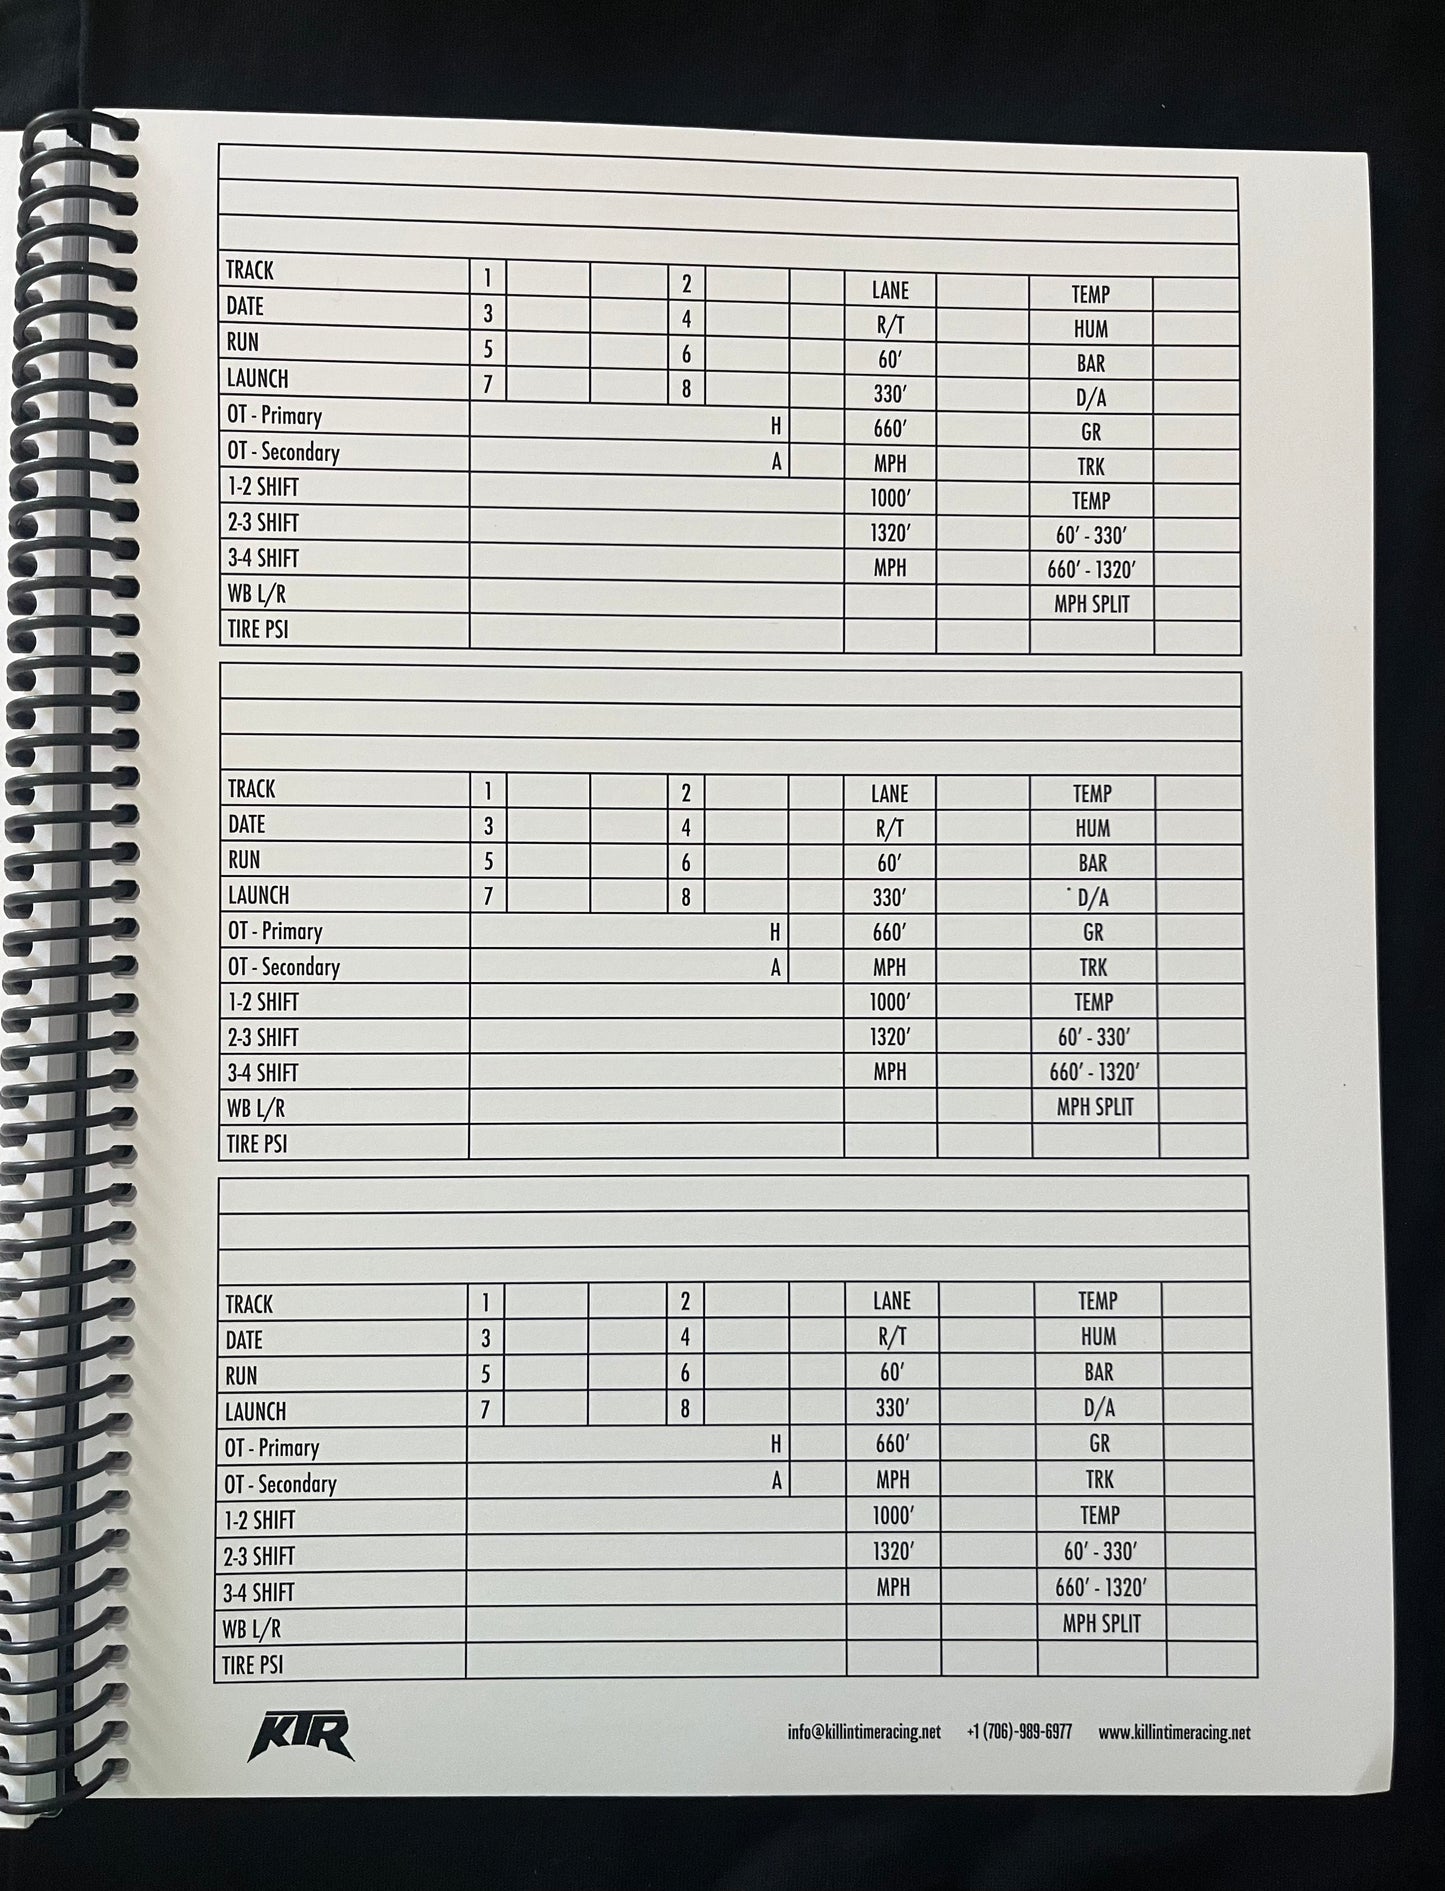 TRACK 1 2 LANE TEMP
DATE 3 4 R/T HUM
RUN 5 6 60' BAR
LAUNCH 7 8 330' D/A
OT - Primary H 660' GR
OT - Secondary A MPH TRK
1-2 SHIFT 1000' TEMP
2-3 SHIFT 1320' 60' - 330'
3-4 SHIFT MPH 660' - 1320'
WB L/R MPH SPLIT
TIRE PSI
TRACK 1 2 LANE TEMP
DATE 3 4 R/T HUM
RUN 5 6 60' BAR
LAUNCH 7 8 330' D/A
OT - Primary H 660' GR
OT - Secondary A MPH TRK
1-2 SHIFT 1000' TEMP
2-3 SHIFT 1320' 60' - 330'
3-4 SHIFT MPH 660' - 1320'
WB L/R MPH SPLIT
TIRE PSI
TRACK 1 2 LANE TEMP
DATE 3 4 R/T HUM
RUN 5 6 60' BAR
LAUNCH 7 8 330' D/A
OT - Primary H 660' GR
OT - Secondary A MPH TRK
1-2 SHIFT 1000' TEMP
2-3 SHIFT 1320' 60' - 330'
3-4 SHIFT MPH 660' - 1320'
WB L/R MPH SPLIT
TIRE PSI
KTR info@killintimeracing.net +1 (706)-989-6977 www.killintimeracing.net